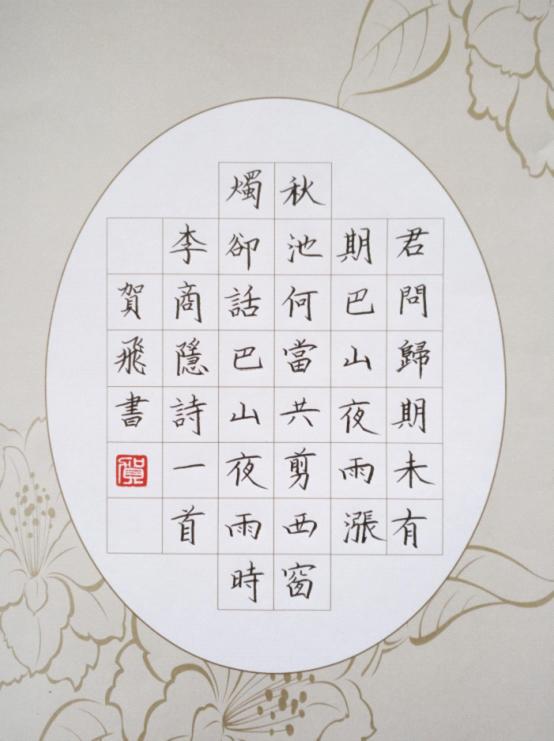 君問歸期未有
期巴山夜雨漲
秋池何當共剪西窗
燭卻話巴山夜雨時
李商隱詩一首
賀飛書
賀